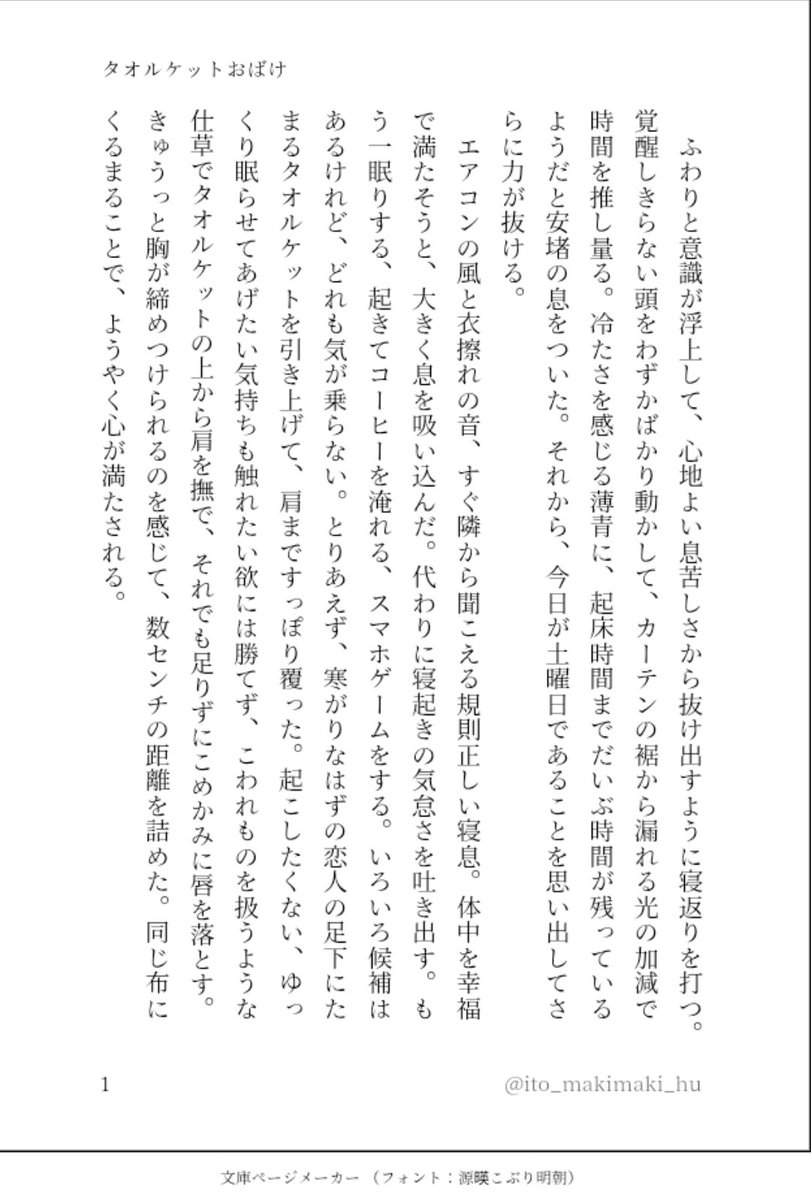 タオルケットおばけ
　ふわりと意識が浮上して、心地よい息苦しさから抜け出すように寝返りを打つ。
覚醒しきらない頭をわずかばかり動かして、カーテンの裾から漏れる光の加減で
時間を推し量る。冷たさを感じる薄青に、起床時間までだいぶ時間が残っている
ようだと安堵の息をついた。それから、今日が土曜日であることを思い出してさ
らに力が抜ける。
　エアコンの風と衣擦れの音、すぐ隣から聞こえる規則正しい寝息。体中を幸福
で満たそうと、大きく息を吸い込んだ。代わりに寝起きの気怠さを吐き出す。も
う一眠りする、起きてコーヒーを淹れる、スマホゲームをする。いろいろ候補は
あるけれど、どれも気が乗らない。とりあえず、寒がりなはずの恋人の足下にた
まるタオルケットを引き上げて、肩まですっぽり覆った。起こしたくない、ゆっ
くり眠らせてあげたい気持ちも触れたい欲には勝てず、こわれものを扱うような
仕草でタオルケットの上から肩を撫で、それでも足りずにこめかみに唇を落とす。
きゅうっと胸が締めつけられるのを感じて、数センチの距離を詰めた。同じ布に
くるまることで、ようやく心が満たされる。
1
@ito_makimaki_hu
文庫ページメーカー（フォント：源暎こぶり明朝）